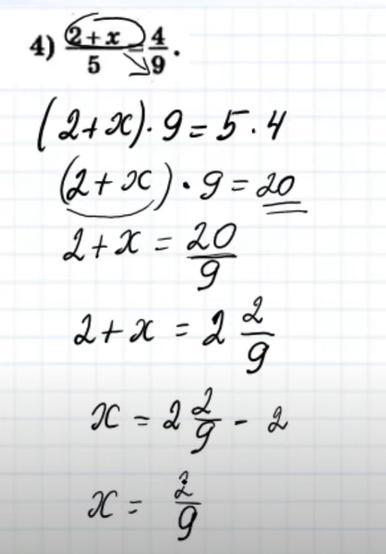 4) (2+x)/5 = 4/9.
(2+x)·9=5·4
(2+x)·9=20
2+x = 20/9
2+x = 2 2/9
x = 2 2/9 - 2
x = 2/9